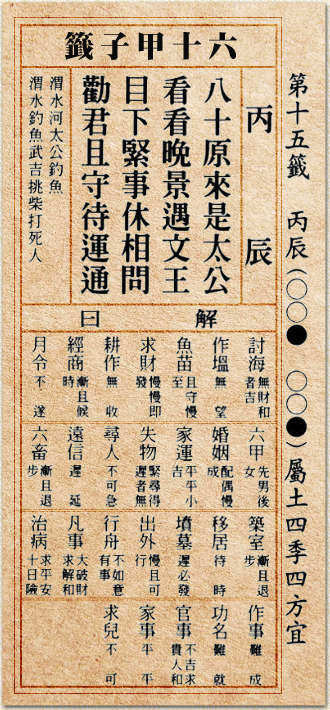 第十五籤　丙辰(○○●　○○●)屬土四季四方宜
六十甲子籤
丙辰
八十原來是太公
看看晚景遇文王
目下緊事休相問
勸君且守待運通
渭水河太公釣魚
渭水釣魚武吉挑柴打死人
解曰
討海 無財和者吉
作塭 無望
魚苗 且守慢至
求財 慢慢即發
耕作 無收
經商 漸且候時
月令 不遂
六甲 先男後女
婚姻 配偶慢成
家運 平平小吉
失物 緊尋得遲者無
尋人 不可急
遠信 遲延
六畜 漸且退步
築室 漸且退步
移居 待時
墳墓 遲必發
出外 慢且可行
行舟 不如意有事
凡事 大破財求解和
治病 求平安十日險
作事 難成
功名 難就
官事 不吉求貴人和
家事 平平
求兒 不可